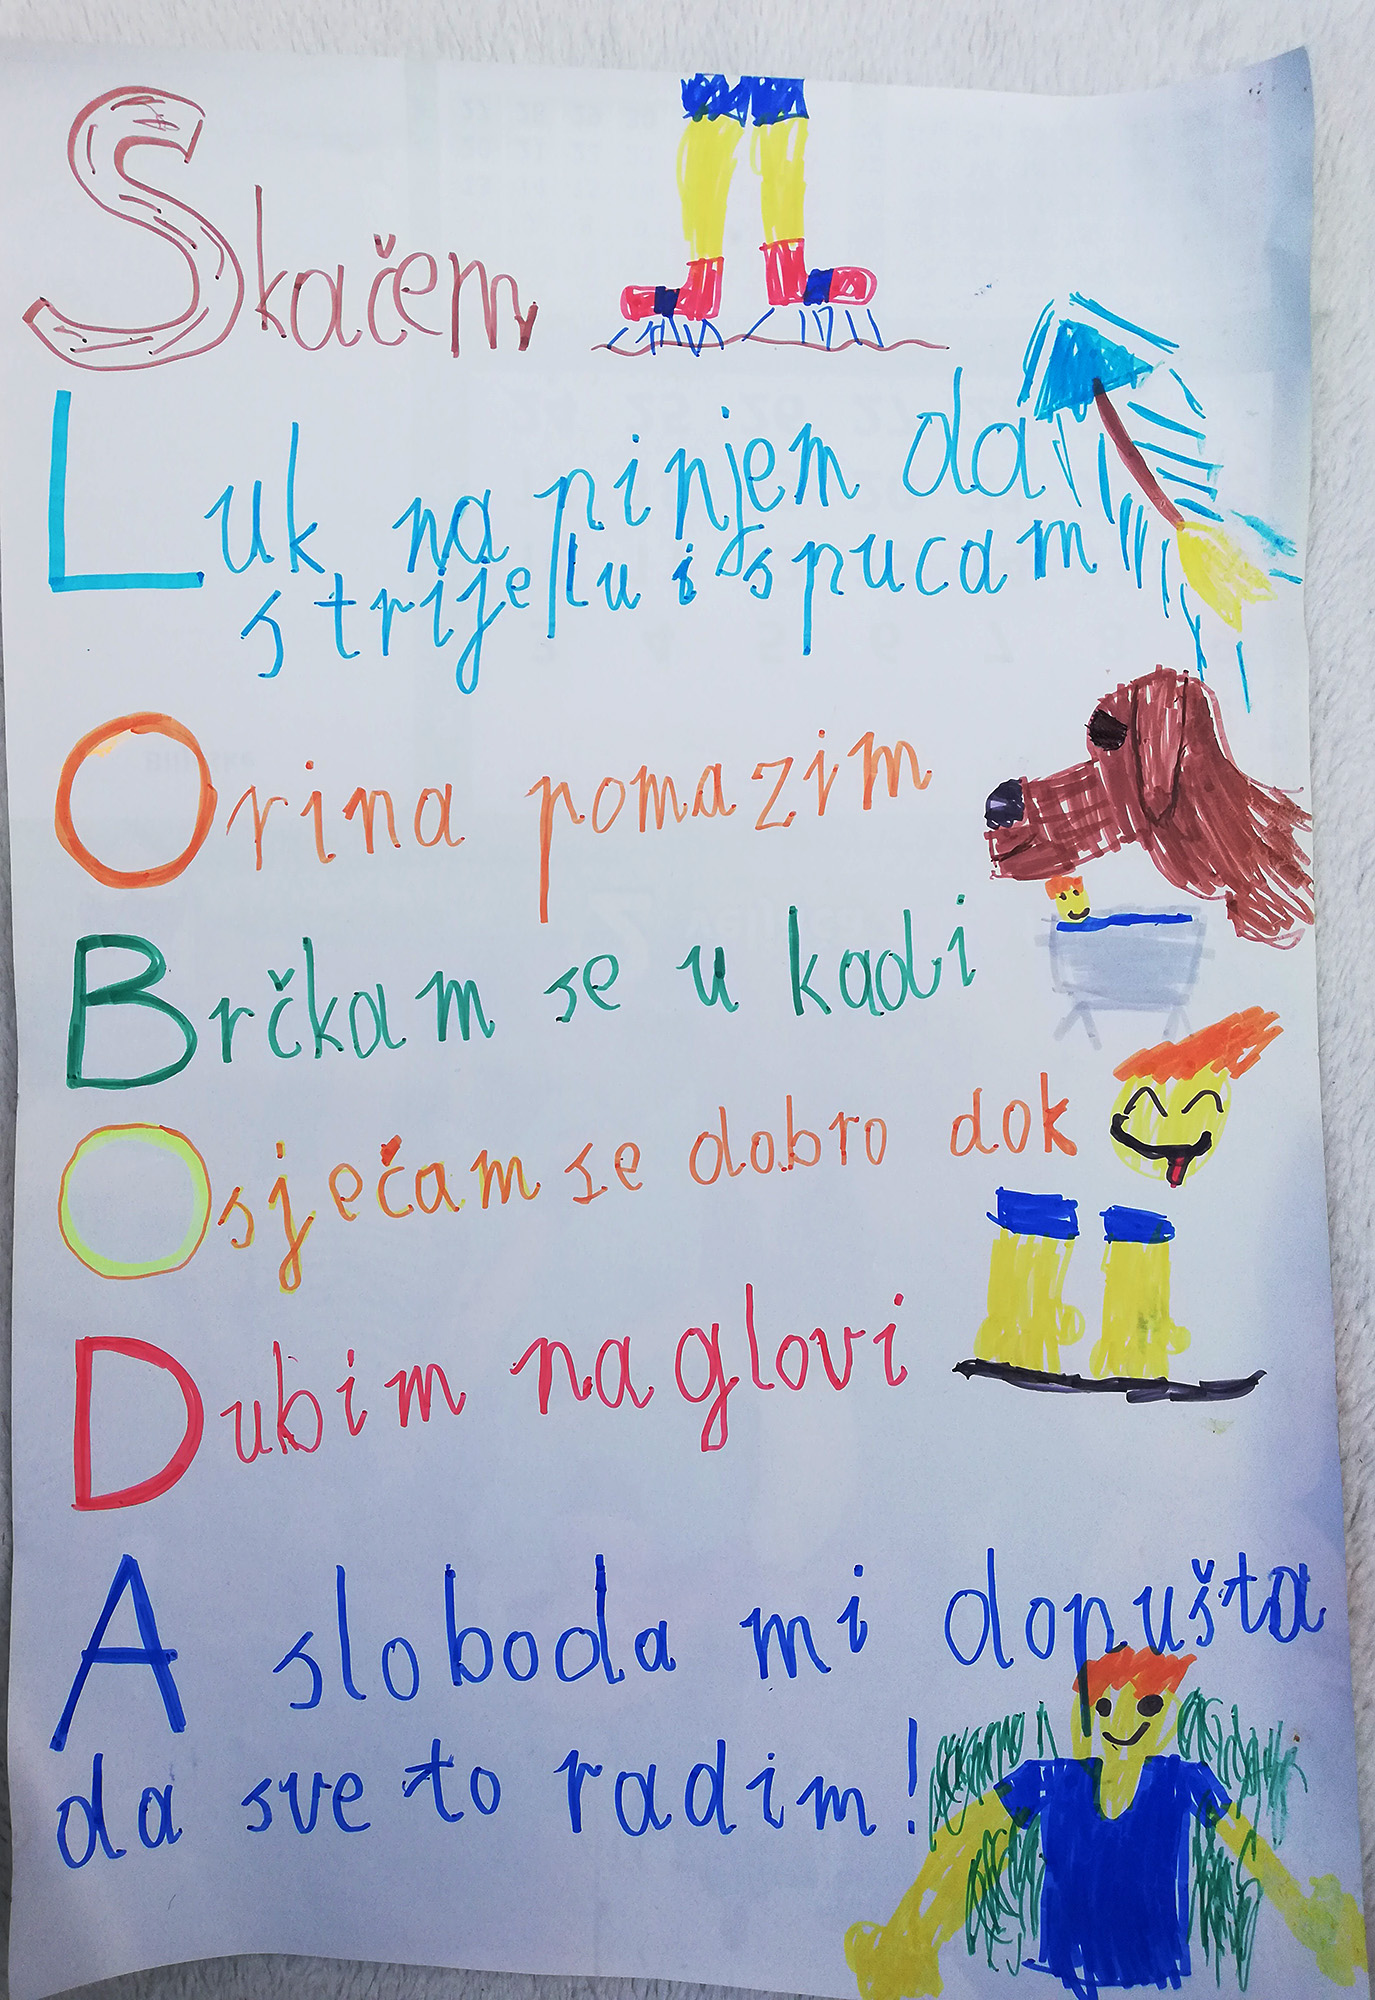 Skačem
Luk napinjem da
strijelu ispucam
Orina pomazim
Brčkam se u kadi
Osjećam se dobro dok
Dubim na glovi
A sloboda mi dopušta
da sve to radim!